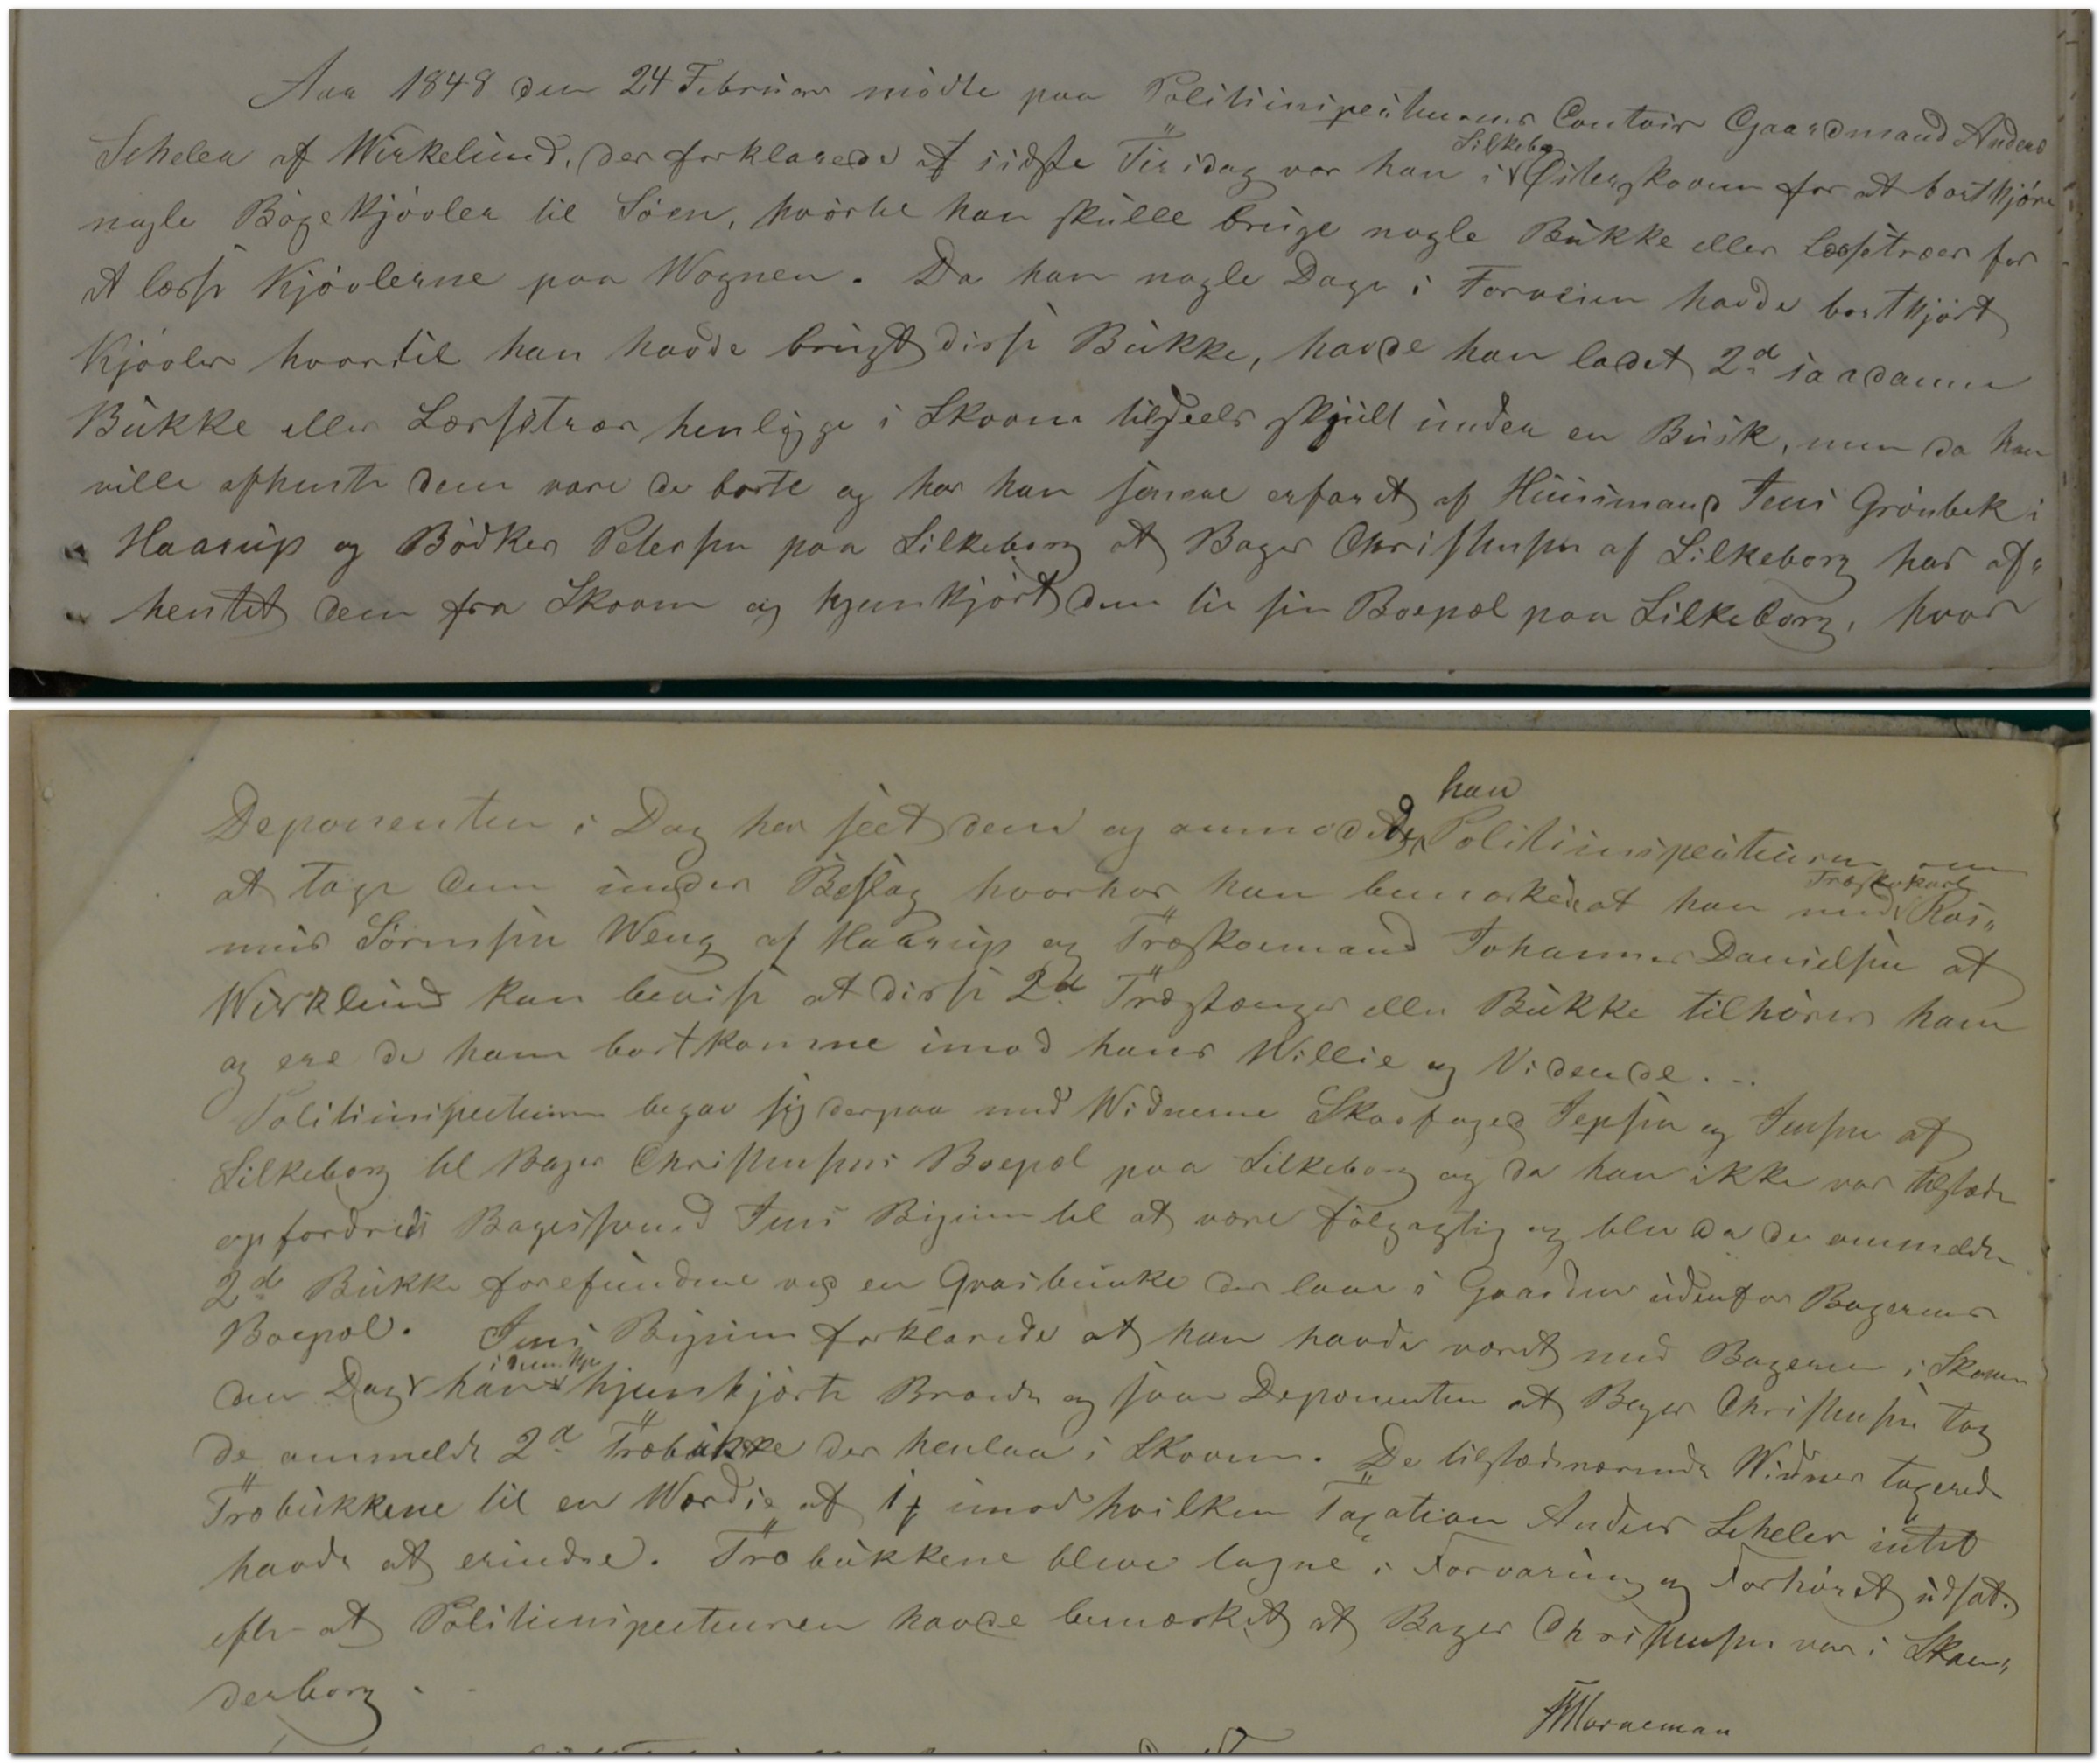 Aar 1848 den 24 Februar mødte paa Politiinspecteurens Contoir Gaardmand Anders
Scheler af Wirkelund, der forklarede at sidste Tirsdag var han i Silkeb. Østerskoven for at bortkjøre
nogle Bøgekjævler til Søen, hvortil han skulle bruge nogle Bukke eller Læssetræer for
at læsse Kjøvlerne paa Wognen. Da han nogle Dage i Forveien havde bortkjørt
Kjøvler hvortil han havde brugt disse Bukke, havde han ladet 2de saadanne
Bukke eller Læssetræer henligge i Skoven tildeels skjult under en Busk, men da han
ville afhente dem vare de borte og har han senere erfaret af Huusmand Jens Grønbek i
Haarup og Bødker Petersen paa Silkeborg at Bager Christensen af Silkeborg har af=
hentet dem fra Skoven og hjemkjørt dem til sin Boepæl paa Silkeborg, hvor
Deponenten i Dag har seet dem og anmodede han Politiinspecteuren om
at tage dem under Beslag hvorhos han bemærkede at han med Træskokarl Ras=
mus Sørensen Weng af Haarup og Træskoemand Johannes Danielsen af
Wirklund kan bevise at disse 2de Træstænger eller Bukke tilhører ham
og ere de ham bortkomne imod hans Willie og Vidende. . –
Politiinspecteuren begav sig derpaa med Widnerne Skovfoged Jepsen og Jensen af
Silkeborg til Bager Christensens Boepæl paa Silkeborg og da han ikke var tilstæde
opfordredes Bagersvend Jens Bigum til at være følgagtig og blev da de anmeldte
2de Bukke forefundne ved en Qvasbunke der laae i Gaarden udenfor Bagerens
Boepæl. Jens Bigum forklarede at han havde været med Bageren i Skoven
den Dag han hjemkjørte Brænde og saae Deponenten at Bager Christensen tog
de anmeldte 2de Træbukke der henlaa i Skoven. De tilstædeværende Widner taxerede
Træbukkene til en Wærdie af 1 ƒ imod hvilken Taxation Anders Scheler intet
havde at erindre. Træbukkene bleve tagne i Forvaring og Forhøret udsat.
efter at Politiinspecteuren havde bemærket at Bager Christensen var i Skan=
derborg .